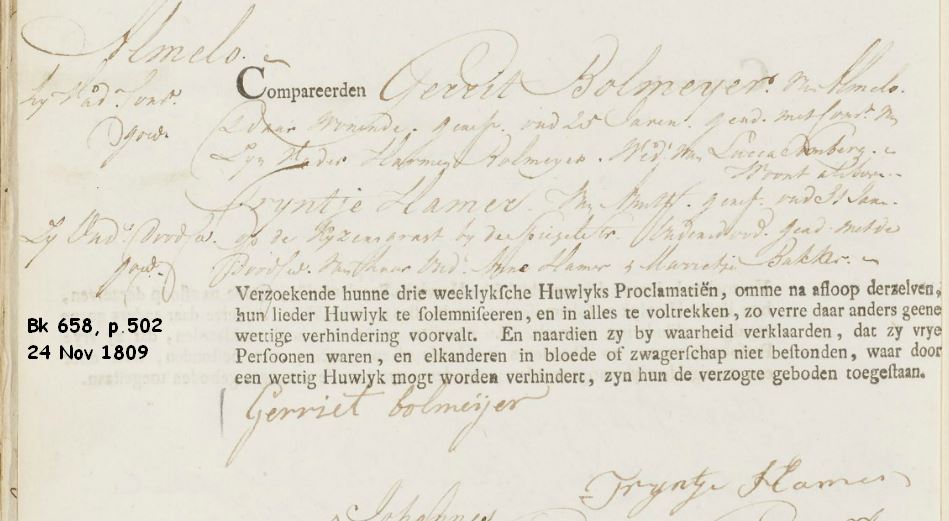 Almelo.
zy Vad. Cons.
goed.
Compareerden Gerrit Bolmeyer. Van Almelo.
Aldaar Wonende. geref. oud 25 Jaren. gead. met Cons. Van
Zyn Vader Harmen Bolmeyer. Wed. Van Lucca
Woont aldaar
Tryntje Hamer. Van geref. oud 31 Jaar.
zy Oud. Doodsed. op de Lyzensgrast by de Spiegelstr. Ouders dood. gead. met de
goed. Doodsed. van haar Oud. Hamer & Marretie Bakker.
Verzoekende hunne drie weeklykſche Huwlyks Proclamatiën, omme na afloop derzelven,
hun lieder Huwlyk te ſolemniſeeren, en in alles te voltrekken, zo verre daar anders geene
wettige verhindering voorvalt. En naardien zy by waarheid verklaarden, dat zy vrye
Perſoonen waren, en elkanderen in bloede of zwagerſchap niet beſtonden, waar door
een wettig Huwlyk mogt worden verhindert, zyn hun de verzogte geboden toegeſtaan.
Bk 658, p.502
24 Nov 1809
Gerriet bolmeijer
Tryntje Hamer
Johannes